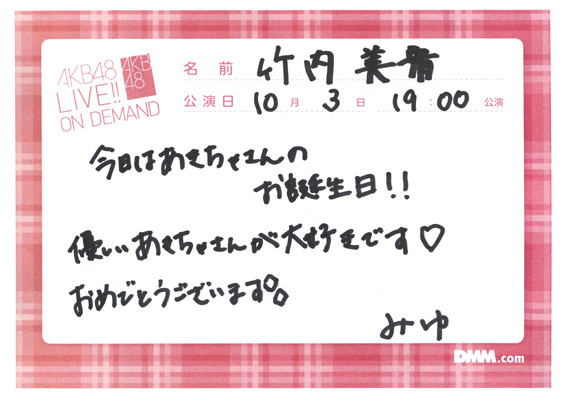 AKB48
LIVE!!
ON DEMAND
AKB
48
名前 竹内美宥
公演日 10月 3日 19:00 公演
今日はあきちゃさんの
お誕生日!!
優しいあきちゃさんが大好きです♡
おめでとうございます。
みゆ
DMM.com